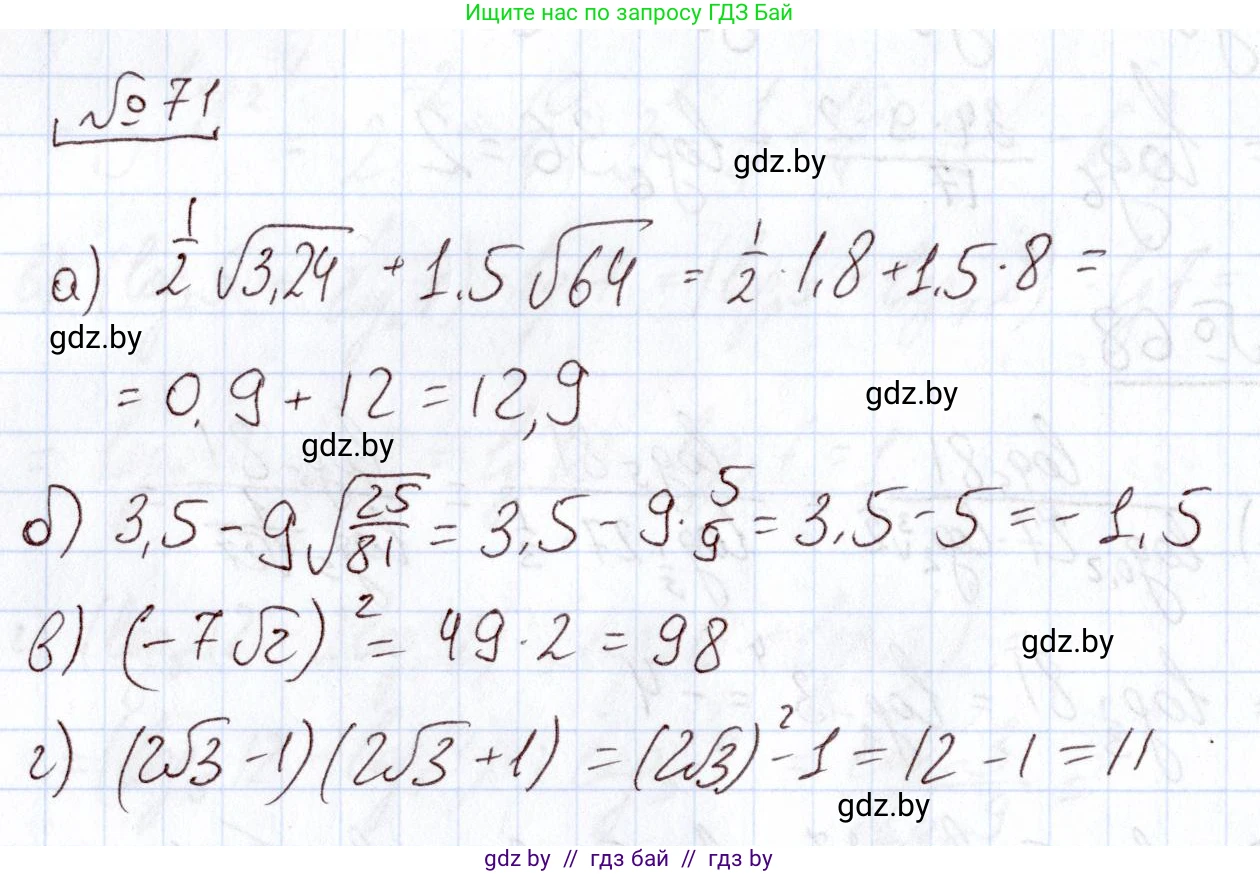 Ищите нас по запросу ГДЗ Бай
№ 71
gdz.by
а) 1/2 √3,24 + 1,5 √64 = 1/2 · 1,8 + 1,5 · 8 =
gdz.by
= 0,9 + 12 = 12,9
gdz.by
gdz.by
б) 3,5 - 9 √25/81 = 3,5 - 9 · 5/9 = 3,5 - 5 = - 1,5
в) (-7 √2)² = 49 · 2 = 98
gdz.by
г) (2√3 - 1) (2√3 + 1) = (2√3)² - 1 = 12 - 1 = 11
gdz.by
gdz by // гдз бай // гдз by